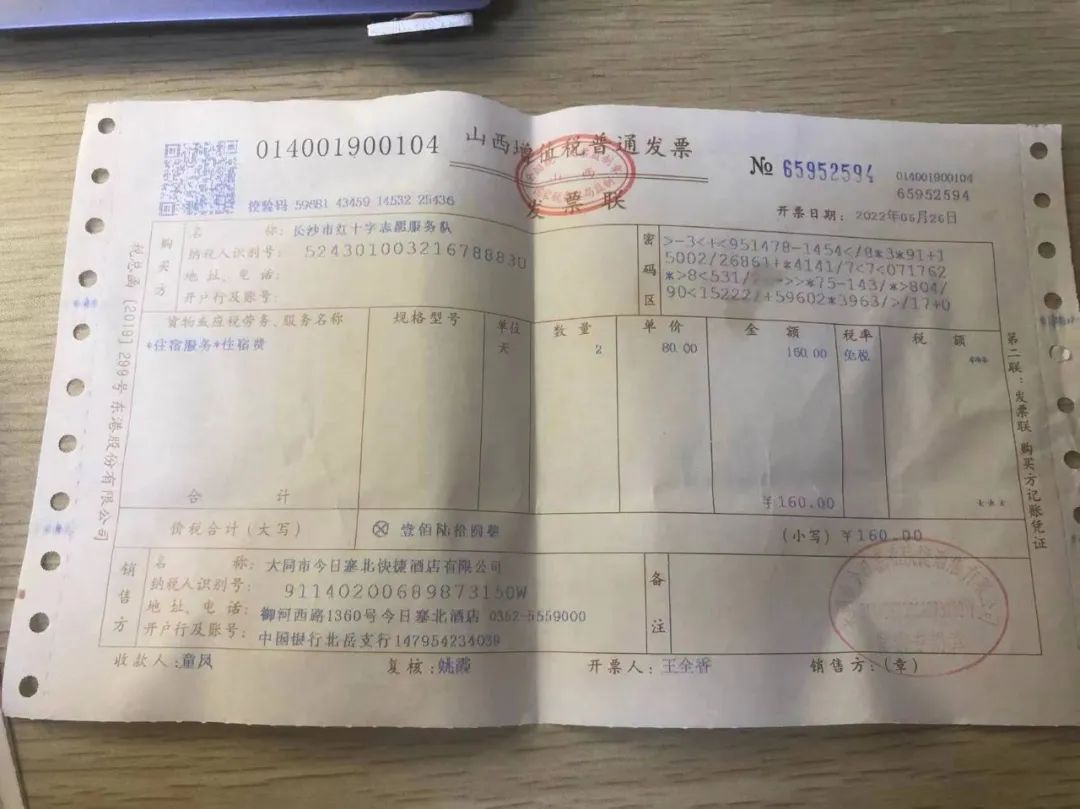 014001900104
山西增值税普通发票
发票联
№ 65952594
014001900104
65952594
校验码 59881 43459 14532 25436
开票日期: 2022年05月26日
购买方
名 称: 长沙市红十字志愿服务队
纳税人识别号: 52430100321678883U
地址、电话:
开户行及账号:
密码区
>-3<+<951478-1454</8*3*91+1
5002/26861+*4141/7<7<071762
*>8<531/ >>*75-143/*>804/
90<15222/+59602*3963>/17+0
货物或应税劳务、服务名称 规格型号 单位 数量 单价 金额 税率 税额
*住宿服务*住宿费 天 2 80.00 160.00 免税 ***
合 计 ¥160.00 ***
价税合计(大写) ⊗ 壹佰陆拾圆整 (小写) ¥160.00
销售方
名 称: 大同市今日塞北快捷酒店有限公司
纳税人识别号: 91140200689873150W
地址、电话: 御河西路1360号今日塞北酒店 0352-5559000
开户行及账号: 中国银行北岳支行147954234039
备注
收款人: 童凤 复核: 姚霞 开票人: 王全香 销售方:(章)
税总函〔2019〕299号东港股份有限公司
第二联:发票联 购买方记账凭证